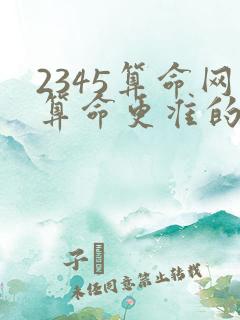 2345算命网
算命更准的
子
未经同意禁止转载